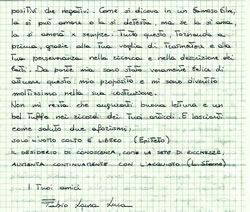 positivi che negativi. Come si diceva in un famoso film,
la si può amare o la si detesta, ma se la si ama,
la si amerà x sempre. Tutto questo tornando a
prima, grazie alla tua voglia di trasmettere e alla
tua perseveranza nella ricerca e nella descrizione dei
fatti. Da parte mia sono stato veramente felice di
attuare questo mio proposito e mi sono divertito
moltissimo nella sua costruzione.
Non mi resta che augurarti buona lettura e un
bel tuffo nei ricordi dei tuoi amici. E lasciarti
come saluto due aforismi:
SOLO L'UOMO COLTO È LIBERO (EPITETO)
IL DESIDERIO DI CONOSCENZA, COME LA SETE DI RICCHEZZE,
AUMENTA CONTINUAMENTE CON L'ACQUISTO (L. Sterne)
I Tuoi amici
Fabio Laura Luca